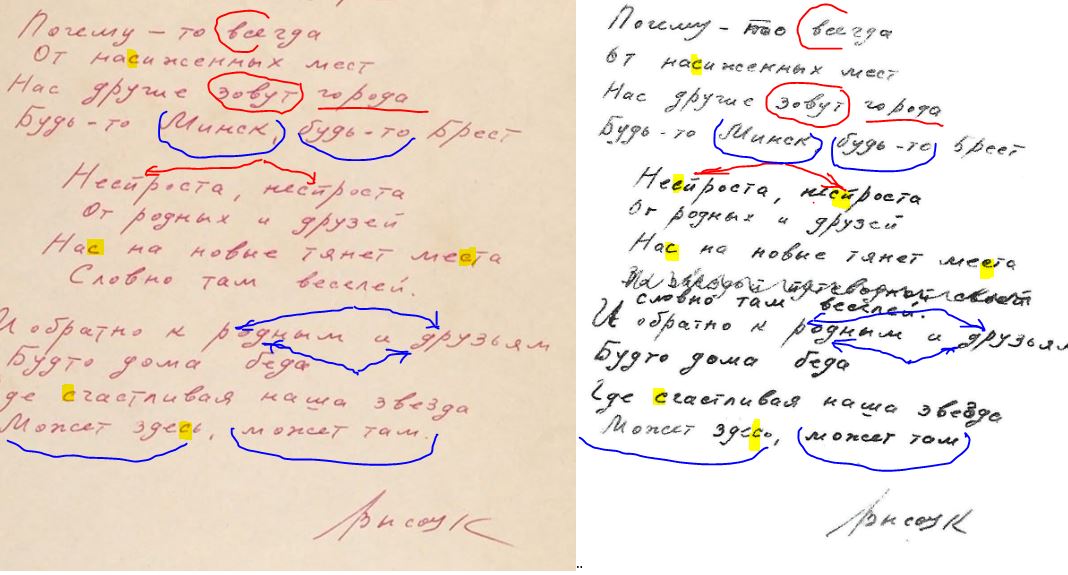 Почему-то всегда
От насиженных мест
Нас другие зовут города
Будь-то Минск, будь-то Брест
Неспроста, неспроста
От родных и друзей
Нас на новые тянет места
Словно там веселей.
И обратно к родным и друзьям
Будто дома беда
Где счастливая наша звезда
Может здесь, может там.
Высоцк
Почему-то всегда
От насиженных мест
Нас другие зовут города
Будь-то Минск, будь-то Брест
Неспроста, неспроста
От родных и друзей
Нас на новые тянет места
словно там веселей.
И обратно к родным и друзьям
Будто дома беда
Где счастливая наша звезда
Может здесь, может там
Высоцк